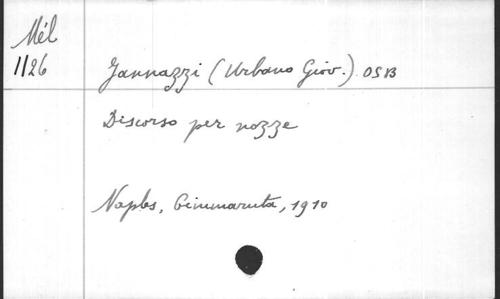 Mél
1126
Jannazzi (Urbano Giov.) OSB
Discorso per nozze
Naples, Cimmaruta, 1910